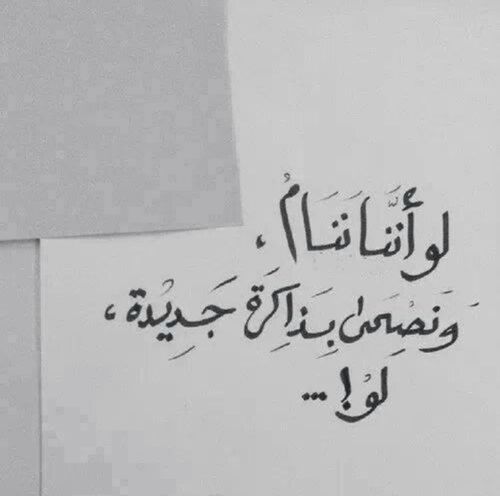 لو أنَّنا نَنَامُ ،
وَنَصِحى بِذاكِرَة جَدِيْدة ،
لوْ ! ...